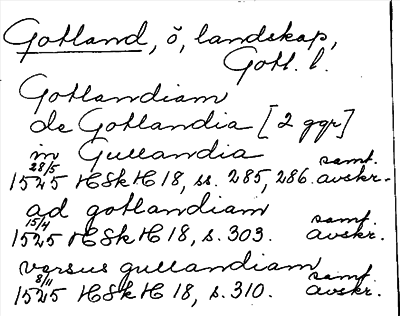 Gotland, ö, landskap,
Gotl. l.
Gotlandiam
de Gotlandia [2 ggr]
in Gullandia
28/5 samt.
1525 HSkH 18, ss. 285, 286. avskr.
ad gotlandiam
15/4 samt.
1525 HSkH 18, s. 303. avskr.
versus gullandiam
8/11 samt.
1525 HSkH 18, s. 310. avskr.